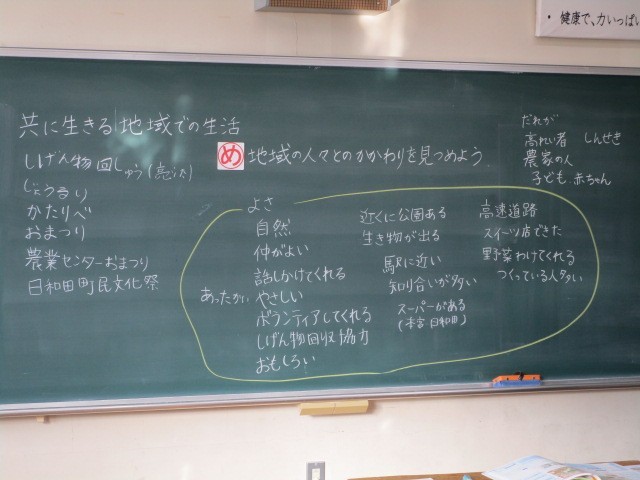 ・健康で、力いっぱい
共に生きる地域での生活
しげん物回しゅう
じょうるり
かたりべ
おまつり
農業センターおまつり
日和田町民文化祭
め 地域の人々とのかかわりを見つめよう
だれが
高れい者 しんせき
農家の人
子ども 赤ちゃん
よさ
あったかい
自然
仲がよい
話しかけてくれる
やさしい
ボランティアしてくれる
しげん物回収協力
おもしろい
近くに公園ある
生き物が出る
駅に近い
知り合いが多い
スーパーがある
(本宮 日和田)
高速道路
スイーツ店できた
野菜わけてくれる
つくっている人多い